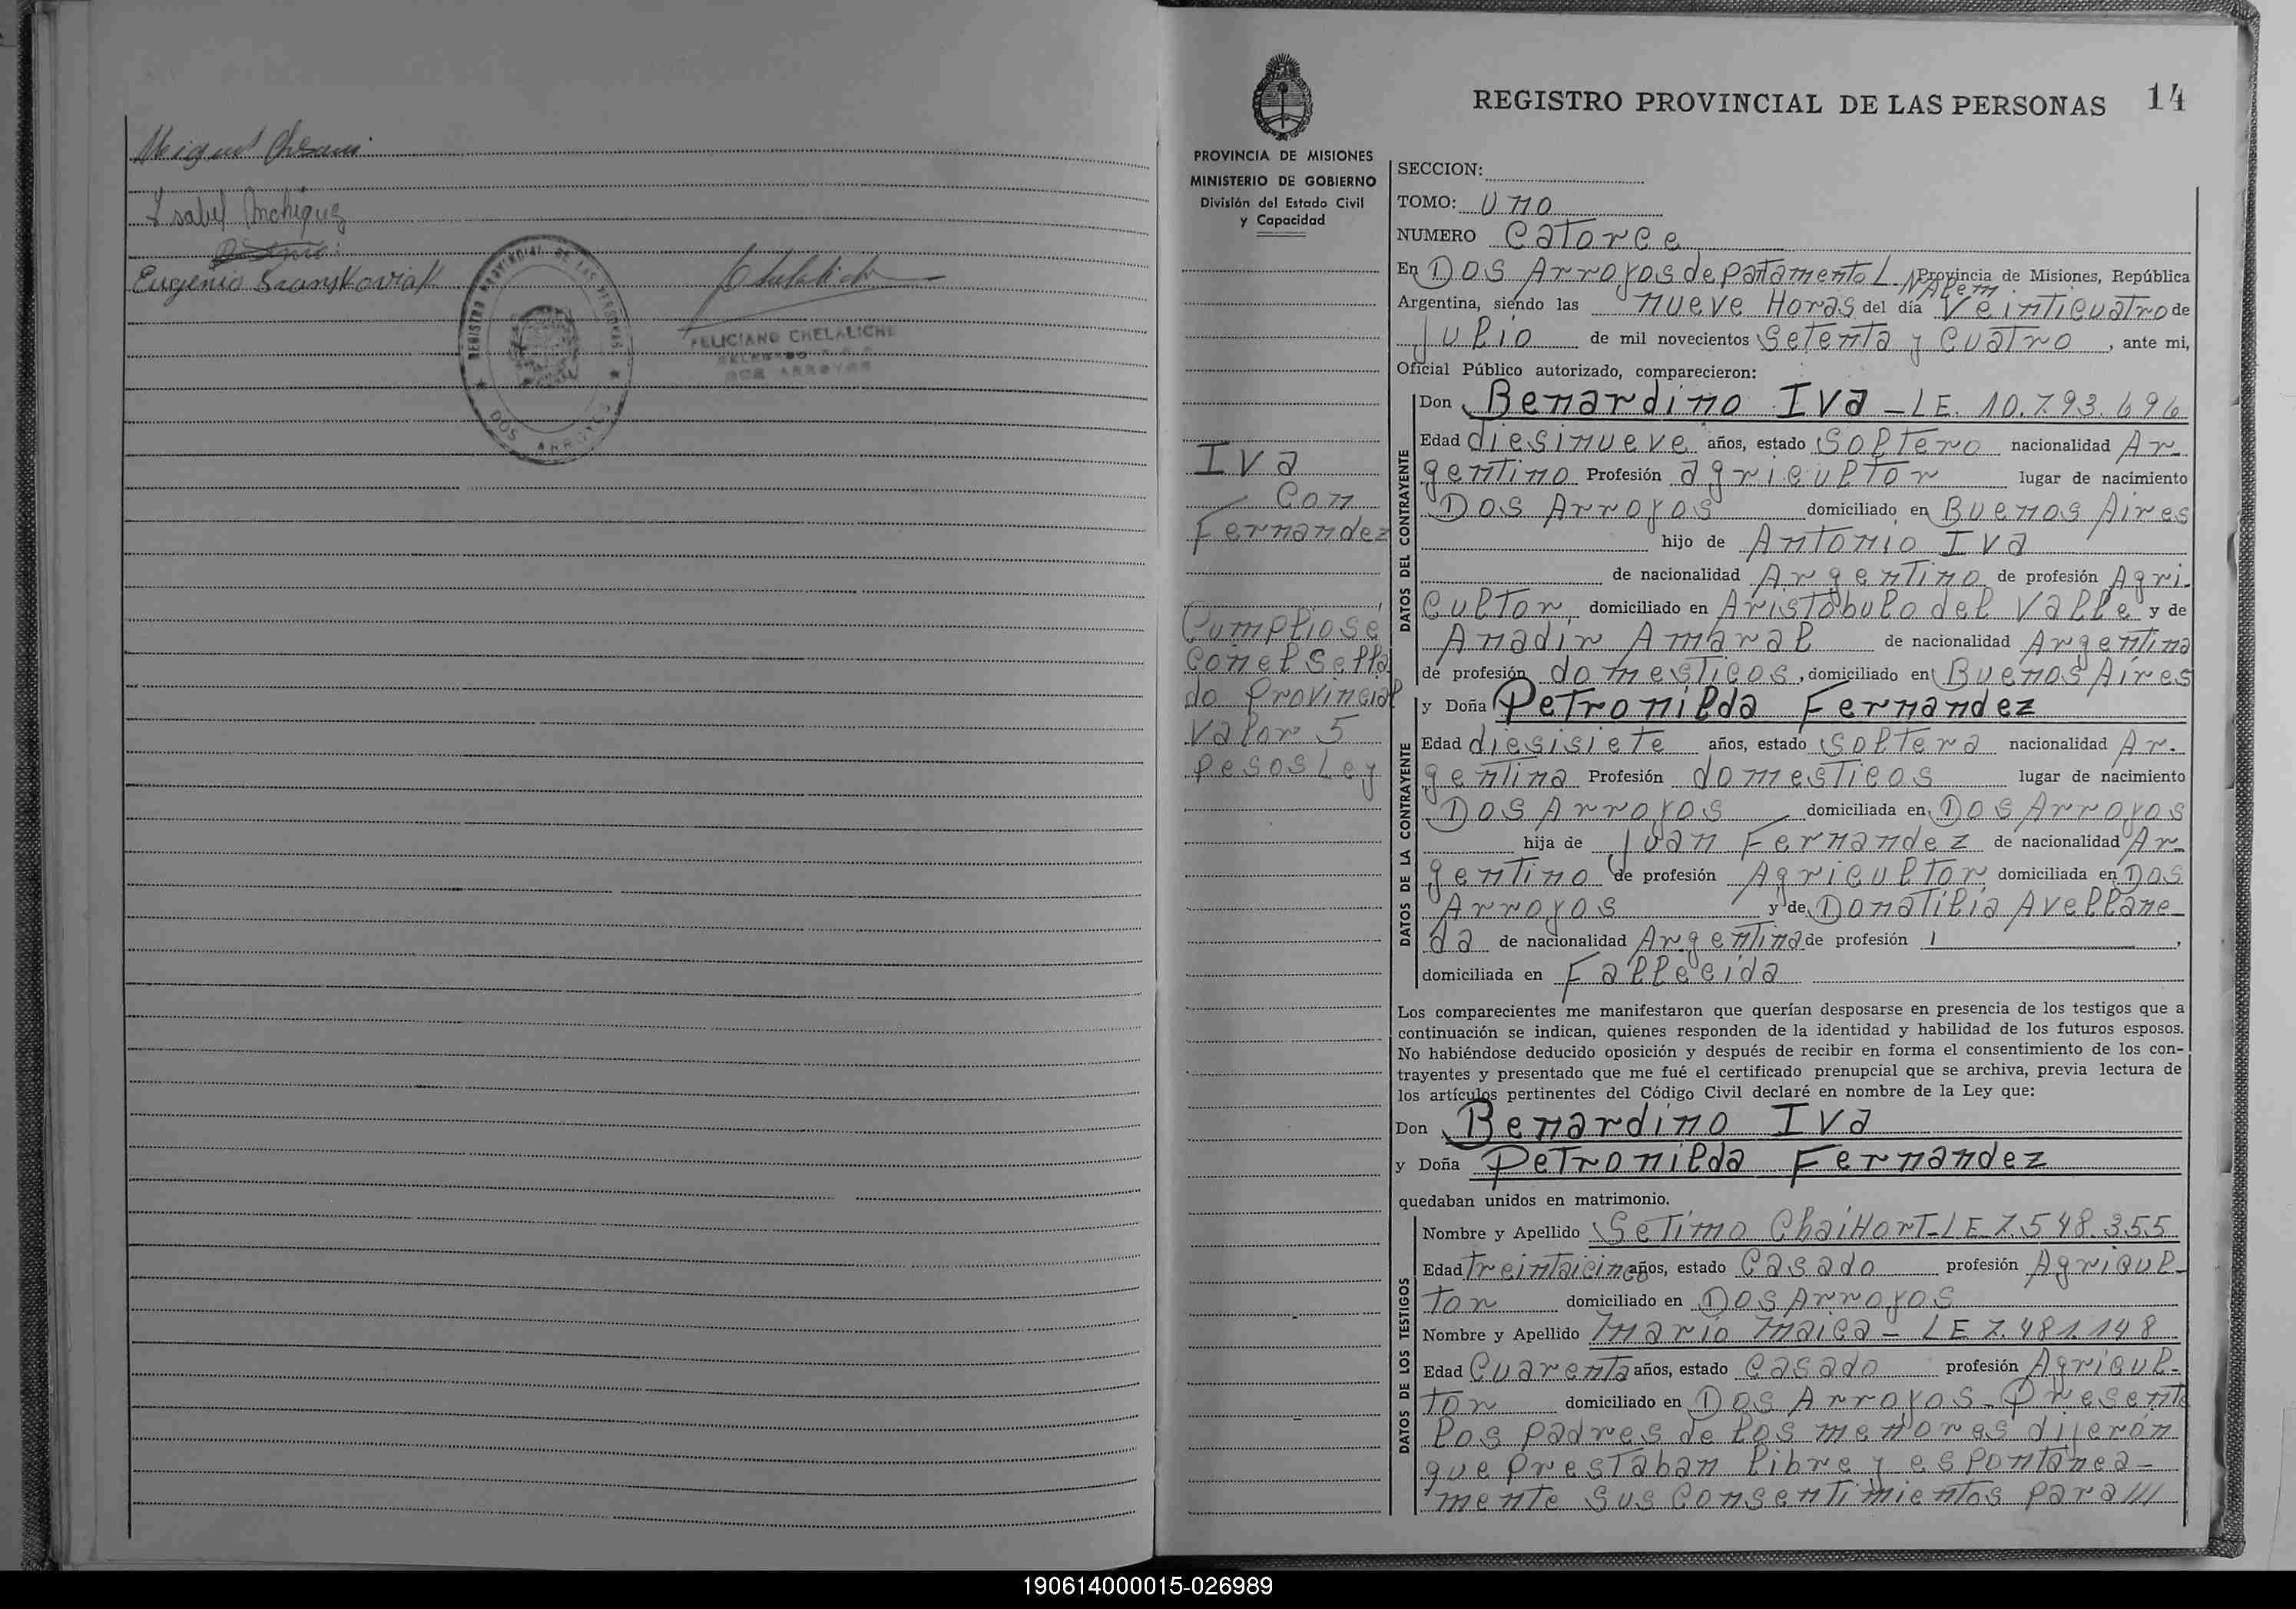 Isabel
Eugenio
REGISTRO PROVINCIAL DE LAS PERSONAS
DOS ARROYOS
FELICIANO CHELALICHE
DELEGADO
DOS ARROYOS
REGISTRO PROVINCIAL DE LAS PERSONAS 14
PROVINCIA DE MISIONES
MINISTERIO DE GOBIERNO
División del Estado Civil
y Capacidad
Iva
Con
Fernandez
Cumpliose
Con el Sella
do Provincial
Valor 5
pesos Ley
SECCION:
TOMO: Uno
NUMERO Catorce
En Dos Arroyos departamento L. N Alem Provincia de Misiones, República
Argentina, siendo las nueve Horas del día Veinticuatro de
Julio de mil novecientos Setenta y Cuatro, ante mi,
Oficial Público autorizado, comparecieron:
DATOS DEL CONTRAYENTE
Don Benardino Iva - LE. 10.793.696
Edad diesinueve años, estado Soltero nacionalidad Ar-
gentino Profesión agricultor lugar de nacimiento
Dos Arroyos domiciliado en Buenos Aires
hijo de Antonio Iva
de nacionalidad Argentino de profesión Agri-
cultor domiciliado en Aristobulo del Valle y de
Anadir Amaral de nacionalidad Argentina
de profesión domesticos, domiciliado en Buenos Aires
DATOS DE LA CONTRAYENTE
y Doña Petronilda Fernandez
Edad diesisiete años, estado Soltera nacionalidad Ar-
gentina Profesión domesticos lugar de nacimiento
Dos Arroyos domiciliada en Dos Arroyos
hija de Juan Fernandez de nacionalidad Ar
gentino de profesión Agricultor domiciliada en Dos
Arroyos y de Donatilia Avellane
da de nacionalidad Argentina de profesión
domiciliada en Fallecida
Los comparecientes me manifestaron que querían desposarse en presencia de los testigos que a
continuación se indican, quienes responden de la identidad y habilidad de los futuros esposos.
No habiéndose deducido oposición y después de recibir en forma el consentimiento de los con-
trayentes y presentado que me fué el certificado prenupcial que se archiva, previa lectura de
los artículos pertinentes del Código Civil declaré en nombre de la Ley que:
Don Benardino Iva
y Doña Petronilda Fernandez
quedaban unidos en matrimonio.
DATOS DE LOS TESTIGOS
Nombre y Apellido Setimo ChaiHort - LE 7.548.355
Edad treintaicinco años, estado Casado profesión Agricul-
tor domiciliado en Dos Arroyos
Nombre y Apellido Mario Maica - LE 7.481.148
Edad Cuarenta años, estado Casado profesión Agricul-
tor domiciliado en Dos Arroyos - Presente
los padres de los menores dijeron
que prestaban libre y espontanea-
mente sus consentimientos para ///
190614000015-026989